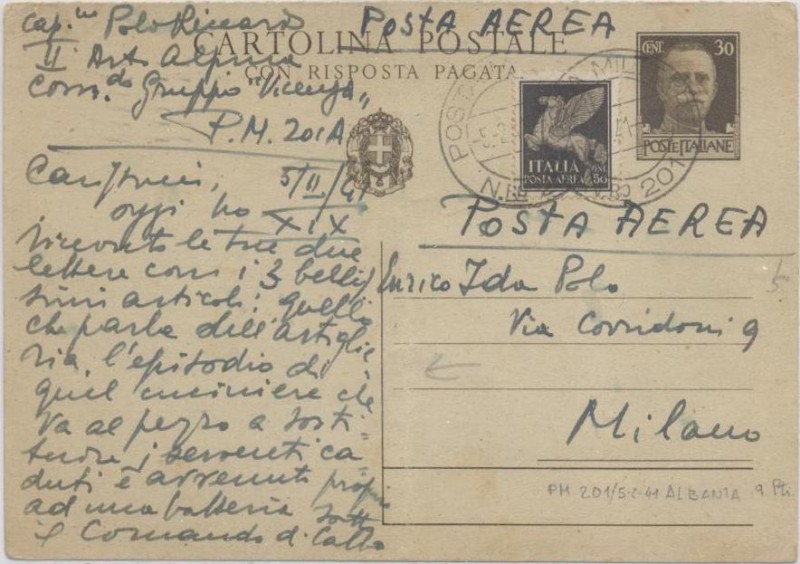 cap.no Polo Riccardo
II Art. Alpina
Com.do Gruppo "Vicenza"
P.M. 201A
POSTA AEREA
CARTOLINA POSTALE
* CON RISPOSTA PAGATA
CENT. 30
POSTE ITALIANE
ITALIA
POSTA AEREA
CENT 50
POSTA MILITARE
N. 201
5/II/41
XIX
oggi ho
ricevuto le tue due
lettere con i 3 bellis
simi articoli: quello
che parla dell'artiglie
ria, l'episodio di
quel cuciniere che
va al pezzo a sosti-
tuire i serventi ca
duti è avvenuto proprio
ad una batteria sotto
il Comando di
POSTA AEREA
Enrico Ida Polo
Via Corridoni 9
Milano
PM 201/5-2-41 ALBANIA 9 Pti.